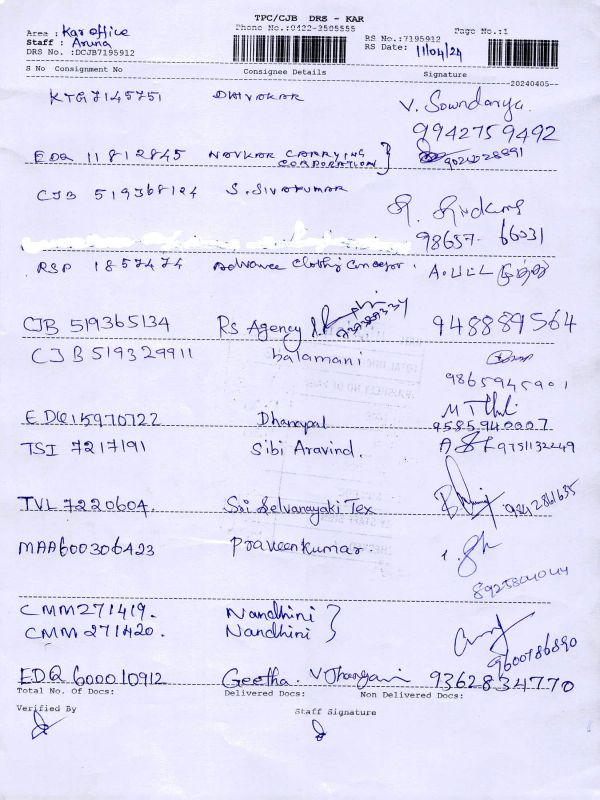 TPC/CJB DRS - KAR
Phone No.:0422-3505555
Area : Kar office
Staff : Aruna
DRS No. :DCJB7195912
RS No.:7195912
RS Date: 11/04/24
Page No.:1
S No Consignment No Consignee Details Signature
20240405
KTG7145751 DHIVAKAR V. Soundarya.
9942759492
EDQ 11812845 NAVKAR CARRYING CORPORATION }
CJB 519368124 S. SIVAKUMAR
98657-66031
RSP 1857474 Advance Clothing
CJB 519365134 Rs Agency 948889564
CJB 519329911 balamani
9865945901
EDQ15970722 Dhanapal 9585940007
TSI 7217191 Sibi Aravind. 9751132249
TVL 7220604. Sri Selvanayaki Tex
MAA600306423 Praveenkumar.
CMM271419. Nandhini }
CMM 271420. Nandhini
9600786890
EDQ 600010912 Geetha. 9362834770
Total No. Of Docs: Delivered Docs: Non Delivered Docs:
Verified By Staff Signature